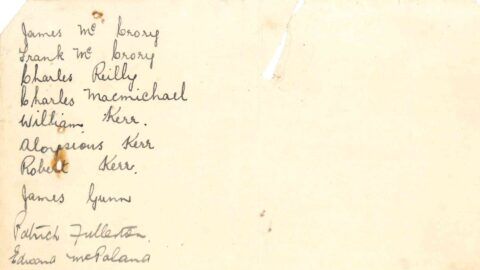 James Mc Crory
Frank Mc Crory
Charles Reilly
Charles Macmichael
William Kerr.
Aloysious Kerr
Robert Kerr.
James Gunn
Patrick Fullerton.
Edward